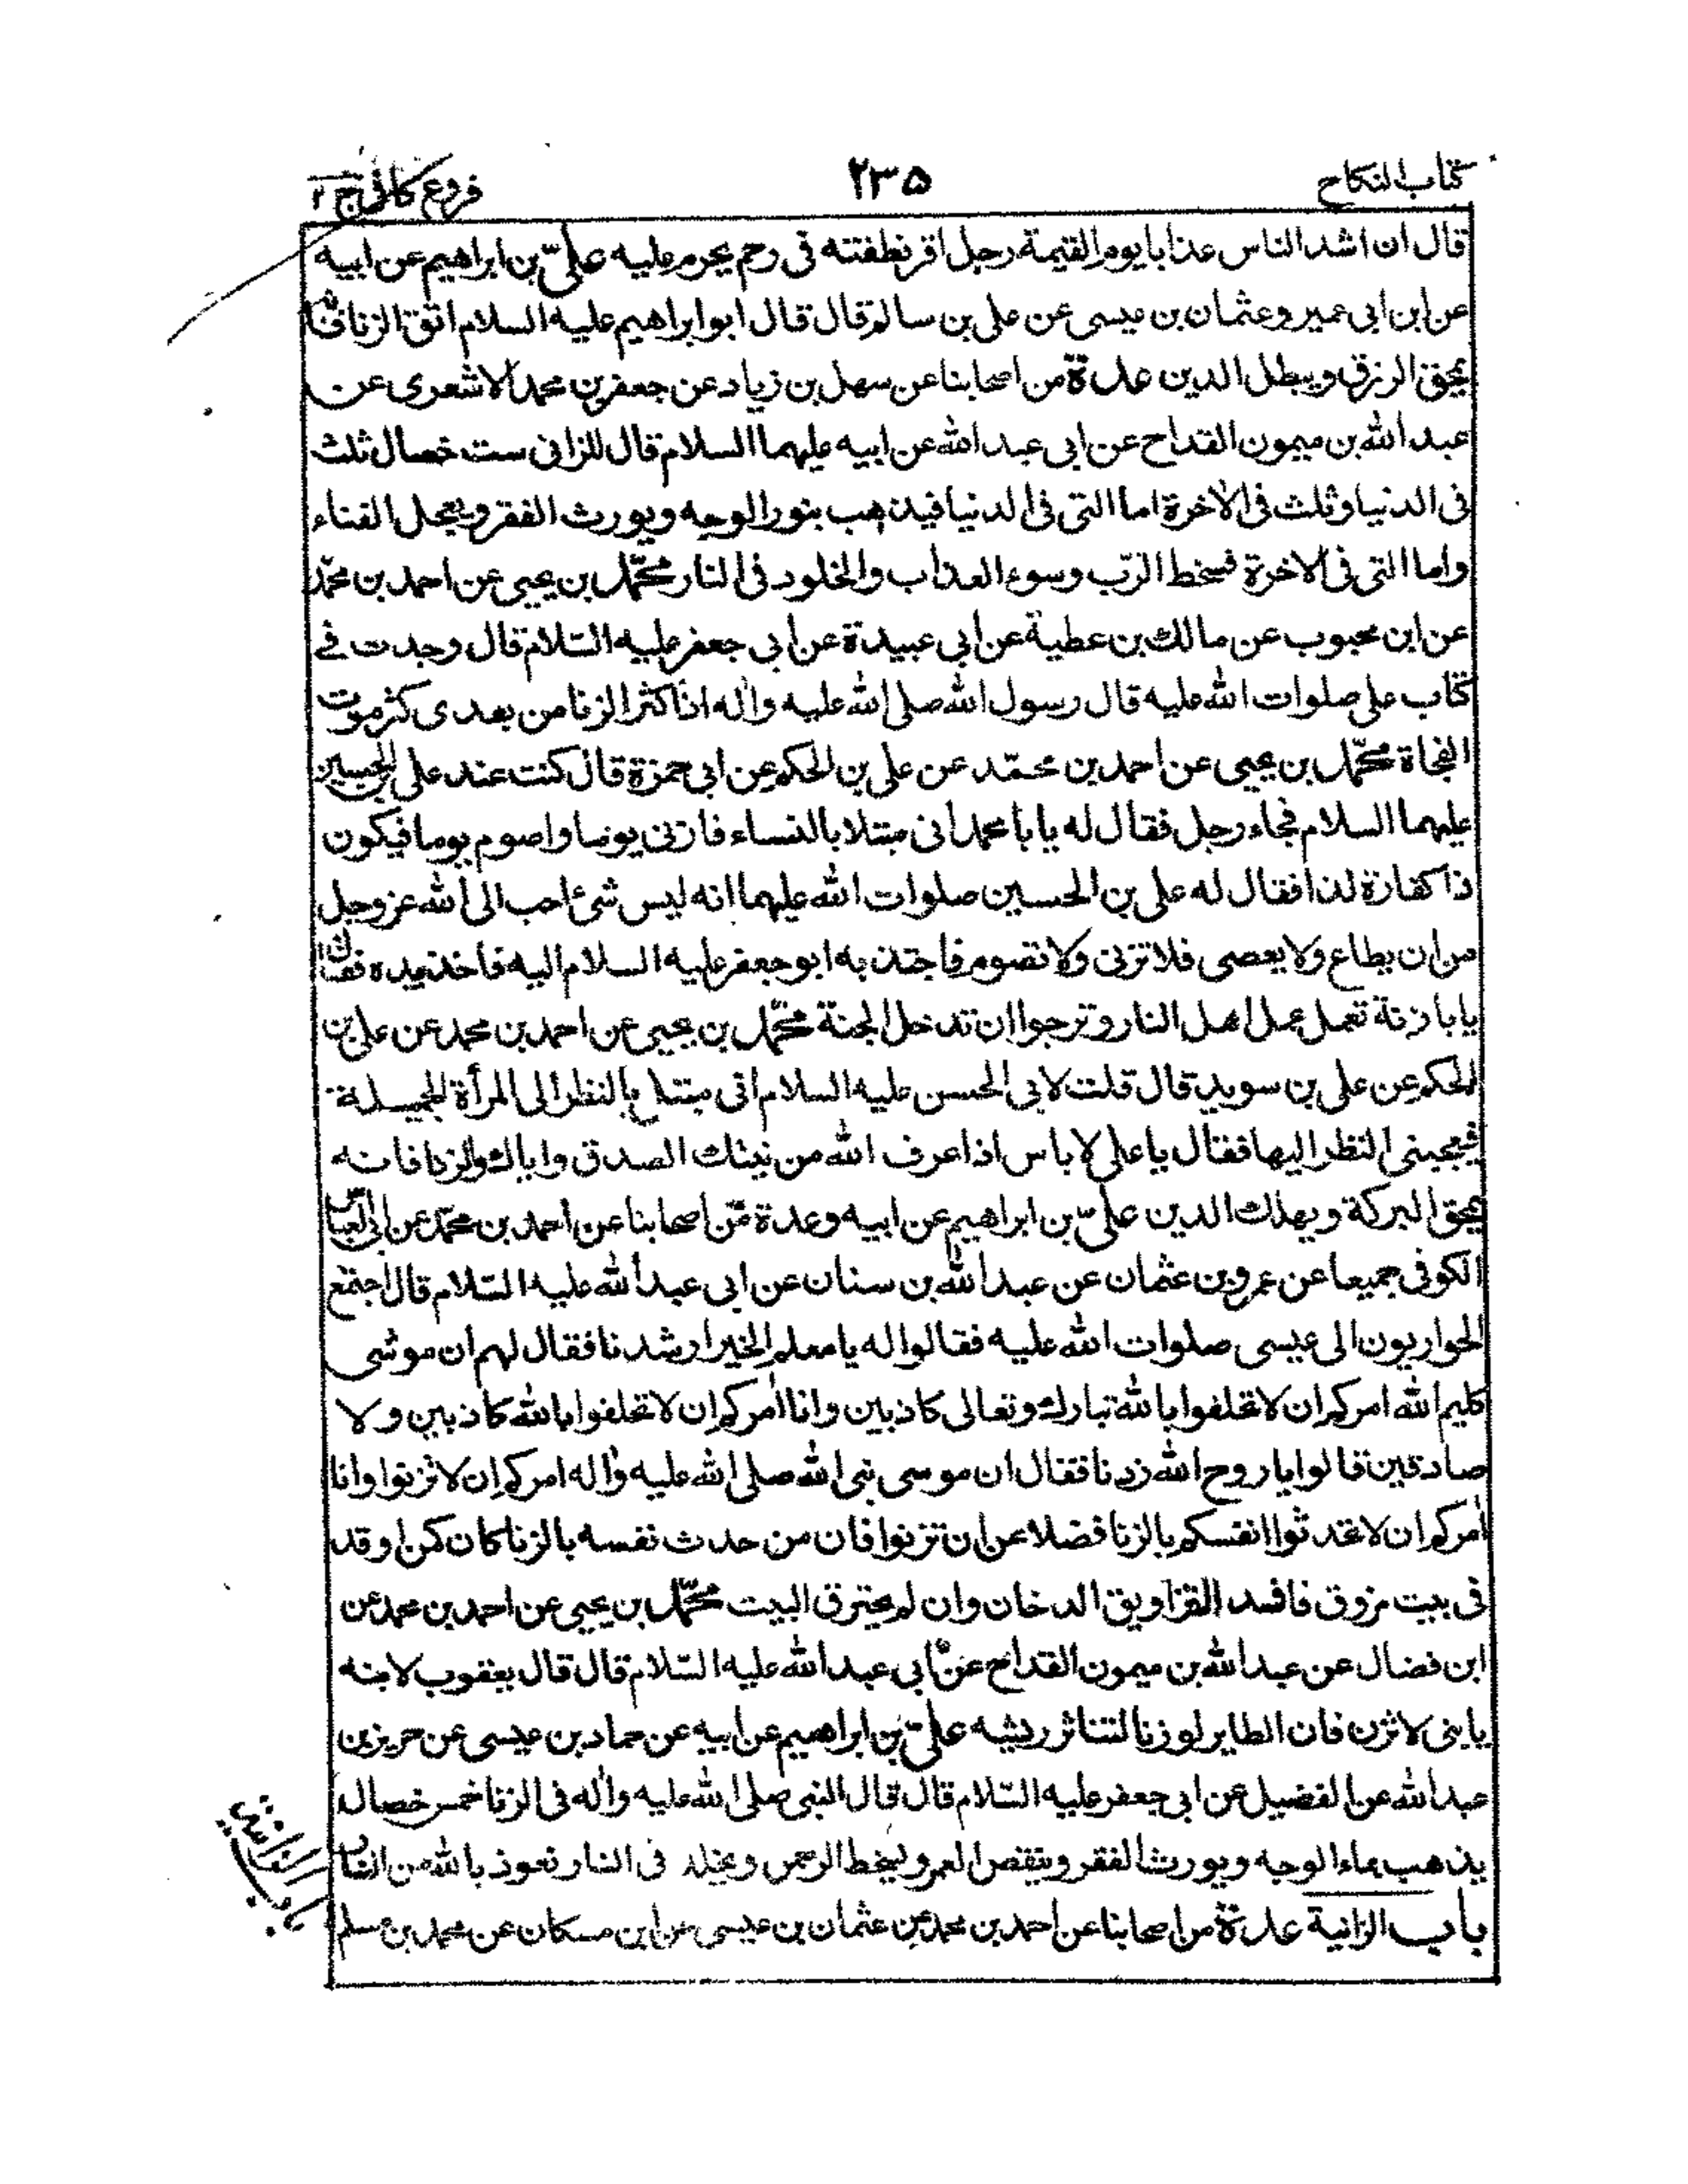 كتاب النكاح
٢٣٥
فروع كافى ج ٢
قال ان اشد الناس عذابا يوم القيمة رجل اقر نطفته فى رحم يحرم عليه علىّ بن ابراهيم عن ابيه
عن ابن ابى عمير وعثمان بن عيسى عن على بن سالم قال قال ابو ابراهيم عليه السلام اتق الزنا فانه
يمحق الرزق ويبطل الدين عدة من اصحابنا عن سهل بن زياد عن جعفر بن محمد الاشعرى عن
عبد الله بن ميمون القداح عن ابى عبد الله عن ابيه عليهما السلام قال للزانى ست خصال ثلث
فى الدنيا وثلث فى الاخرة اما التى فى الدنيا فيذهب بنور الوجه ويورث الفقر ويعجل الفناء
واما التى فى الاخرة فسخط الرّب وسوء العذاب والخلود فى النار محمّد بن يحيى عن احمد بن محمّد
عن ابن محبوب عن مالك بن عطية عن ابى عبيدة عن ابى جعفر عليه السّلام قال وجدت فے
كتاب على صلوات الله عليه قال رسول الله صلى الله عليه واله اذا كثر الزنا من بعدى كثر موت
الفجاة محمّد بن يحيى عن احمد بن محمّد عن على بن الحكم عن ابى حمزة قال كنت عند على بن الحسين
عليهما السلام فجاءه رجل فقال له يا با محمد انى مبتلا بالنساء فازنى يوما واصوم يوما فيكون
ذا كفارة لذا فقال له على بن الحسين صلوات الله عليهما انه ليس شئ احب الى الله عز وجل
من ان يطاع ولا يعصى فلا تزنى ولا تصوم فاجتذبه ابو جعفر عليه السلام اليه فاخذ بيده فقال
يا با زنة تعمل عمل اهل النار وترجوا ان تدخل الجنة محمّد بن يحيى عن احمد بن محمد عن على بن
الحكم عن على بن سويد قال قلت لابى الحسن عليه السلام انى مبتلى بالنظر الى المرأة الجميلة
فيعجبنى النظر اليها فقال يا على لا باس اذا عرف الله من نيتك الصدق واياك والزنا فانه
يمحق البركة ويهلك الدين علىّ بن ابراهيم عن ابيه وعدة من اصحابنا عن احمد بن محمّد عن ابى العباس
الكوفى جميعا عن عمرو بن عثمان عن عبد الله بن سنان عن ابى عبد الله عليه السّلام قال اجتمع
الحواريون الى عيسى صلوات الله عليه فقالوا له يا معلم الخير ارشدنا فقال لهم ان موسى
كليم الله امركم ان لا تحلفوا بالله تبارك وتعالى كاذبين وانا امركم ان لا تحلفوا بالله كاذبين ولا
صادقين قالوا يا روح الله زدنا فقال ان موسى نبى الله صلى الله عليه واله امركم ان لا تزنوا وانا
امركم ان لا تحدثوا انفسكم بالزنا فضلا عن ان تزنوا فان من حدث نفسه بالزنا كان كمن اوقد
فى بيت مزوق فافسد التزاويق الدخان وان لم يحترق البيت محمّد بن يحيى عن احمد بن محمد عن
ابن فضال عن عبد الله بن ميمون القداح عن ابى عبد الله عليه السّلام قال قال يعقوب لابنه
يا بنى لا تزن فان الطاير لو زنا لتناثر ريشه علىّ بن ابراهيم عن ابيه عن حماد بن عيسى عن حريز بن
عبد الله عن الفضيل عن ابى جعفر عليه السّلام قال قال النبى صلى الله عليه واله فى الزنا خمس خصال
يذهب بماء الوجه ويورث الفقر وينقص العمر ويسخط الرحمن ويخلد فى النار نعوذ بالله من النار
باب الزانية عدة من اصحابنا عن احمد بن محمد عن عثمان بن عيسى عن ابن مسكان عن محمد بن مسلم
باب الزانية